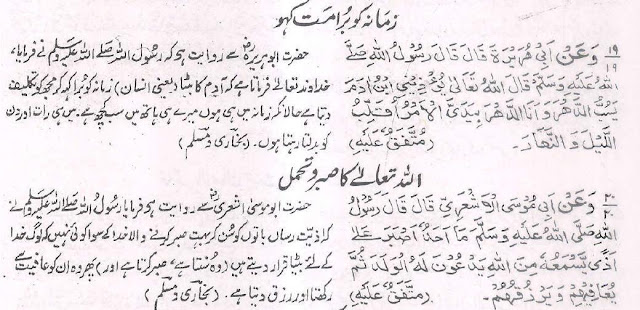 زمانہ کو برا مت کہو
۱۹
۱۹
وَعَنْ اَبِيْ هُرَيْرَةَ قَالَ قَالَ رَسُوْلُ اللهِ صَلَّے
اللهُ عَلَيْهِ وَسَلَّمَ قَالَ اللهُ تَعَالٰى يُؤْذِيْنِي ابْنُ اٰدَمَ
يَسُبُّ الدَّهْرَ وَاَنَا الدَّهْرُ بِيَدِيَ الْاَمْرُ اُقَلِّبُ
اللَّيْلَ وَالنَّهَارَ۔ (مُتَّفَقٌ عَلَيْهِ)
حضرت ابوہریرہؓ سے روایت ہے کہ رسول اللہ صلے اللہ علیہ وسلم نے فرمایا،
خداوند تعالیٰ فرماتا ہے کہ آدم کا بیٹا (یعنی انسان) زمانہ کو برا کہہ کر مجھ کو تکلیف
دیتا ہے حالانکہ زمانہ میں ہی ہوں میرے ہی ہاتھ میں سب کچھ ہے۔ میں ہی رات اور دن
کو بدلتا رہتا ہوں۔ (بخاری و مسلم)
اللہ تعالےٰ کا صبر و تحمل
۲۰
۲۰
وَعَنْ اَبِيْ مُوْسَى الْاَشْعَرِيِّ قَالَ قَالَ رَسُوْلُ
اللهِ صَلَّى اللهُ عَلَيْهِ وَسَلَّمَ مَا اَحَدٌ اَصْبَرَ عَلٰے
اَذًى يَّسْمَعُهٗ مِنَ اللهِ يَدْعُوْنَ لَهُ الْوَلَدَ ثُمَّ
يُعَافِيْهِمْ وَيَرْزُقُهُمْ۔ (مُتَّفَقٌ عَلَيْهِ)
حضرت ابوموسیٰ اشعریؓ سے روایت ہے فرمایا، رسول اللہ صلے اللہ علیہ وسلم نے
کہ اذیت رساں باتوں کو سن کر بہت صبر کرنے والا خدا کے سوا کوئی نہیں کہ لوگ خدا
کے لئے بیٹا قرار دیتے ہیں (وہ سنتا ہے، صبر کرتا ہے اور) پھر وہ ان کو عافیت سے
رکھتا اور رزق دیتا ہے۔ (بخاری و مسلم)